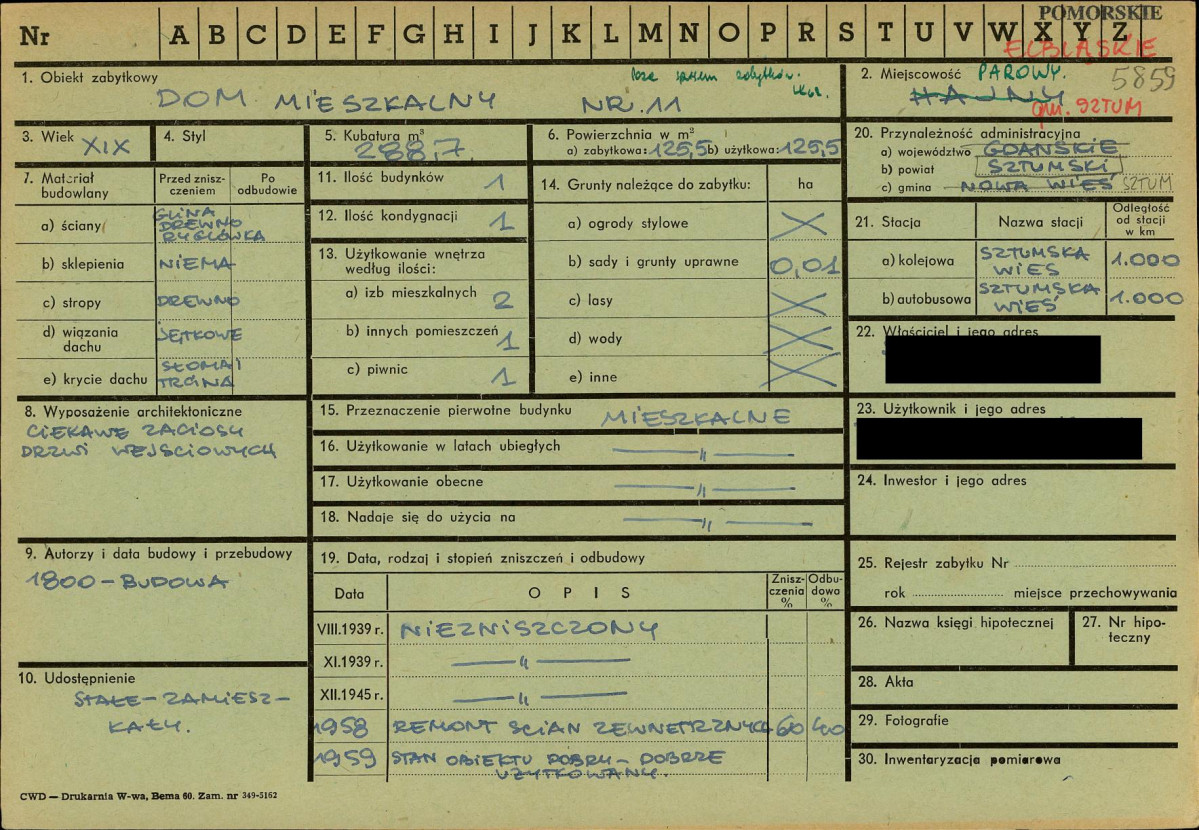 POMORSKIE
Nr A B C D E F G H I J K L M N O P R S T U V W X Y Z
ELBLĄSKIE
1. Obiekt zabytkowy
poza spisem zabytków.
DOM MIESZKALNY NR. 11
2. Miejscowość PAROWY. 5859
HAJNY
gm. SZTUM
3. Wiek XIX
4. Styl
5. Kubatura m³
288,7.
6. Powierzchnia w m²
a) zabytkowa: 125,5 b) użytkowa: 125,5
20. Przynależność administracyjna
a) województwo GDAŃSKIE
b) powiat SZTUMSKI
c) gmina NOWA WIEŚ SZTUM
7. Materiał budowlany
Przed zniszczeniem
Po odbudowie
a) ściany GLINA
DREWNO
RYGLÓWKA
b) sklepienia NIEMA
c) stropy DREWNO
d) wiązania dachu JĘTKOWE
e) krycie dachu SŁOMA I
TRCINA
11. Ilość budynków 1
12. Ilość kondygnacji 1
13. Użytkowanie wnętrza
według ilości:
a) izb mieszkalnych 2
b) innych pomieszczeń 1
c) piwnic 1
14. Grunty należące do zabytku: ha
a) ogrody stylowe
b) sady i grunty uprawne 0,01
c) lasy
d) wody
e) inne
21. Stacja
Nazwa stacji
Odległość
od stacji
w km
a) kolejowa SZTUMSKA
WIES 1.000
b) autobusowa SZTUMSKA
WIEŚ 1.000
22. Właściciel i jego adres
23. Użytkownik i jego adres
24. Inwestor i jego adres
8. Wyposażenie architektoniczne
CIEKAWE ZACIOSY
DRZWI WEJŚCIOWYCH
15. Przeznaczenie pierwotne budynku MIESZKALNE
16. Użytkowanie w latach ubiegłych — " —
17. Użytkowanie obecne — " —
18. Nadaje się do użycia na — " —
9. Autorzy i data budowy i przebudowy
1800 - BUDOWA
10. Udostępnienie
STAŁE - ZAMIESZ-
KAŁY.
19. Data, rodzaj i stopień zniszczeń i odbudowy
Data
OPIS
Znisz-
czenia
%
Odbu-
dowa
%
VIII.1939 r. NIEZNISZCZONY
XI.1939 r. — " —
XII.1945 r. — " —
1958 REMONT ŚCIAN ZEWNETRZNYCH 60 40
1959 STAN OBIEKTU DOBRY - DOBRZE
UŻYTKOWANY.
25. Rejestr zabytku Nr
rok miejsce przechowywania
26. Nazwa księgi hipotecznej
27. Nr hipo-
teczny
28. Akta
29. Fotografie
30. Inwentaryzacja pomiarowa
CWD — Drukarnia W-wa, Bema 60. Zam. nr 349-5162